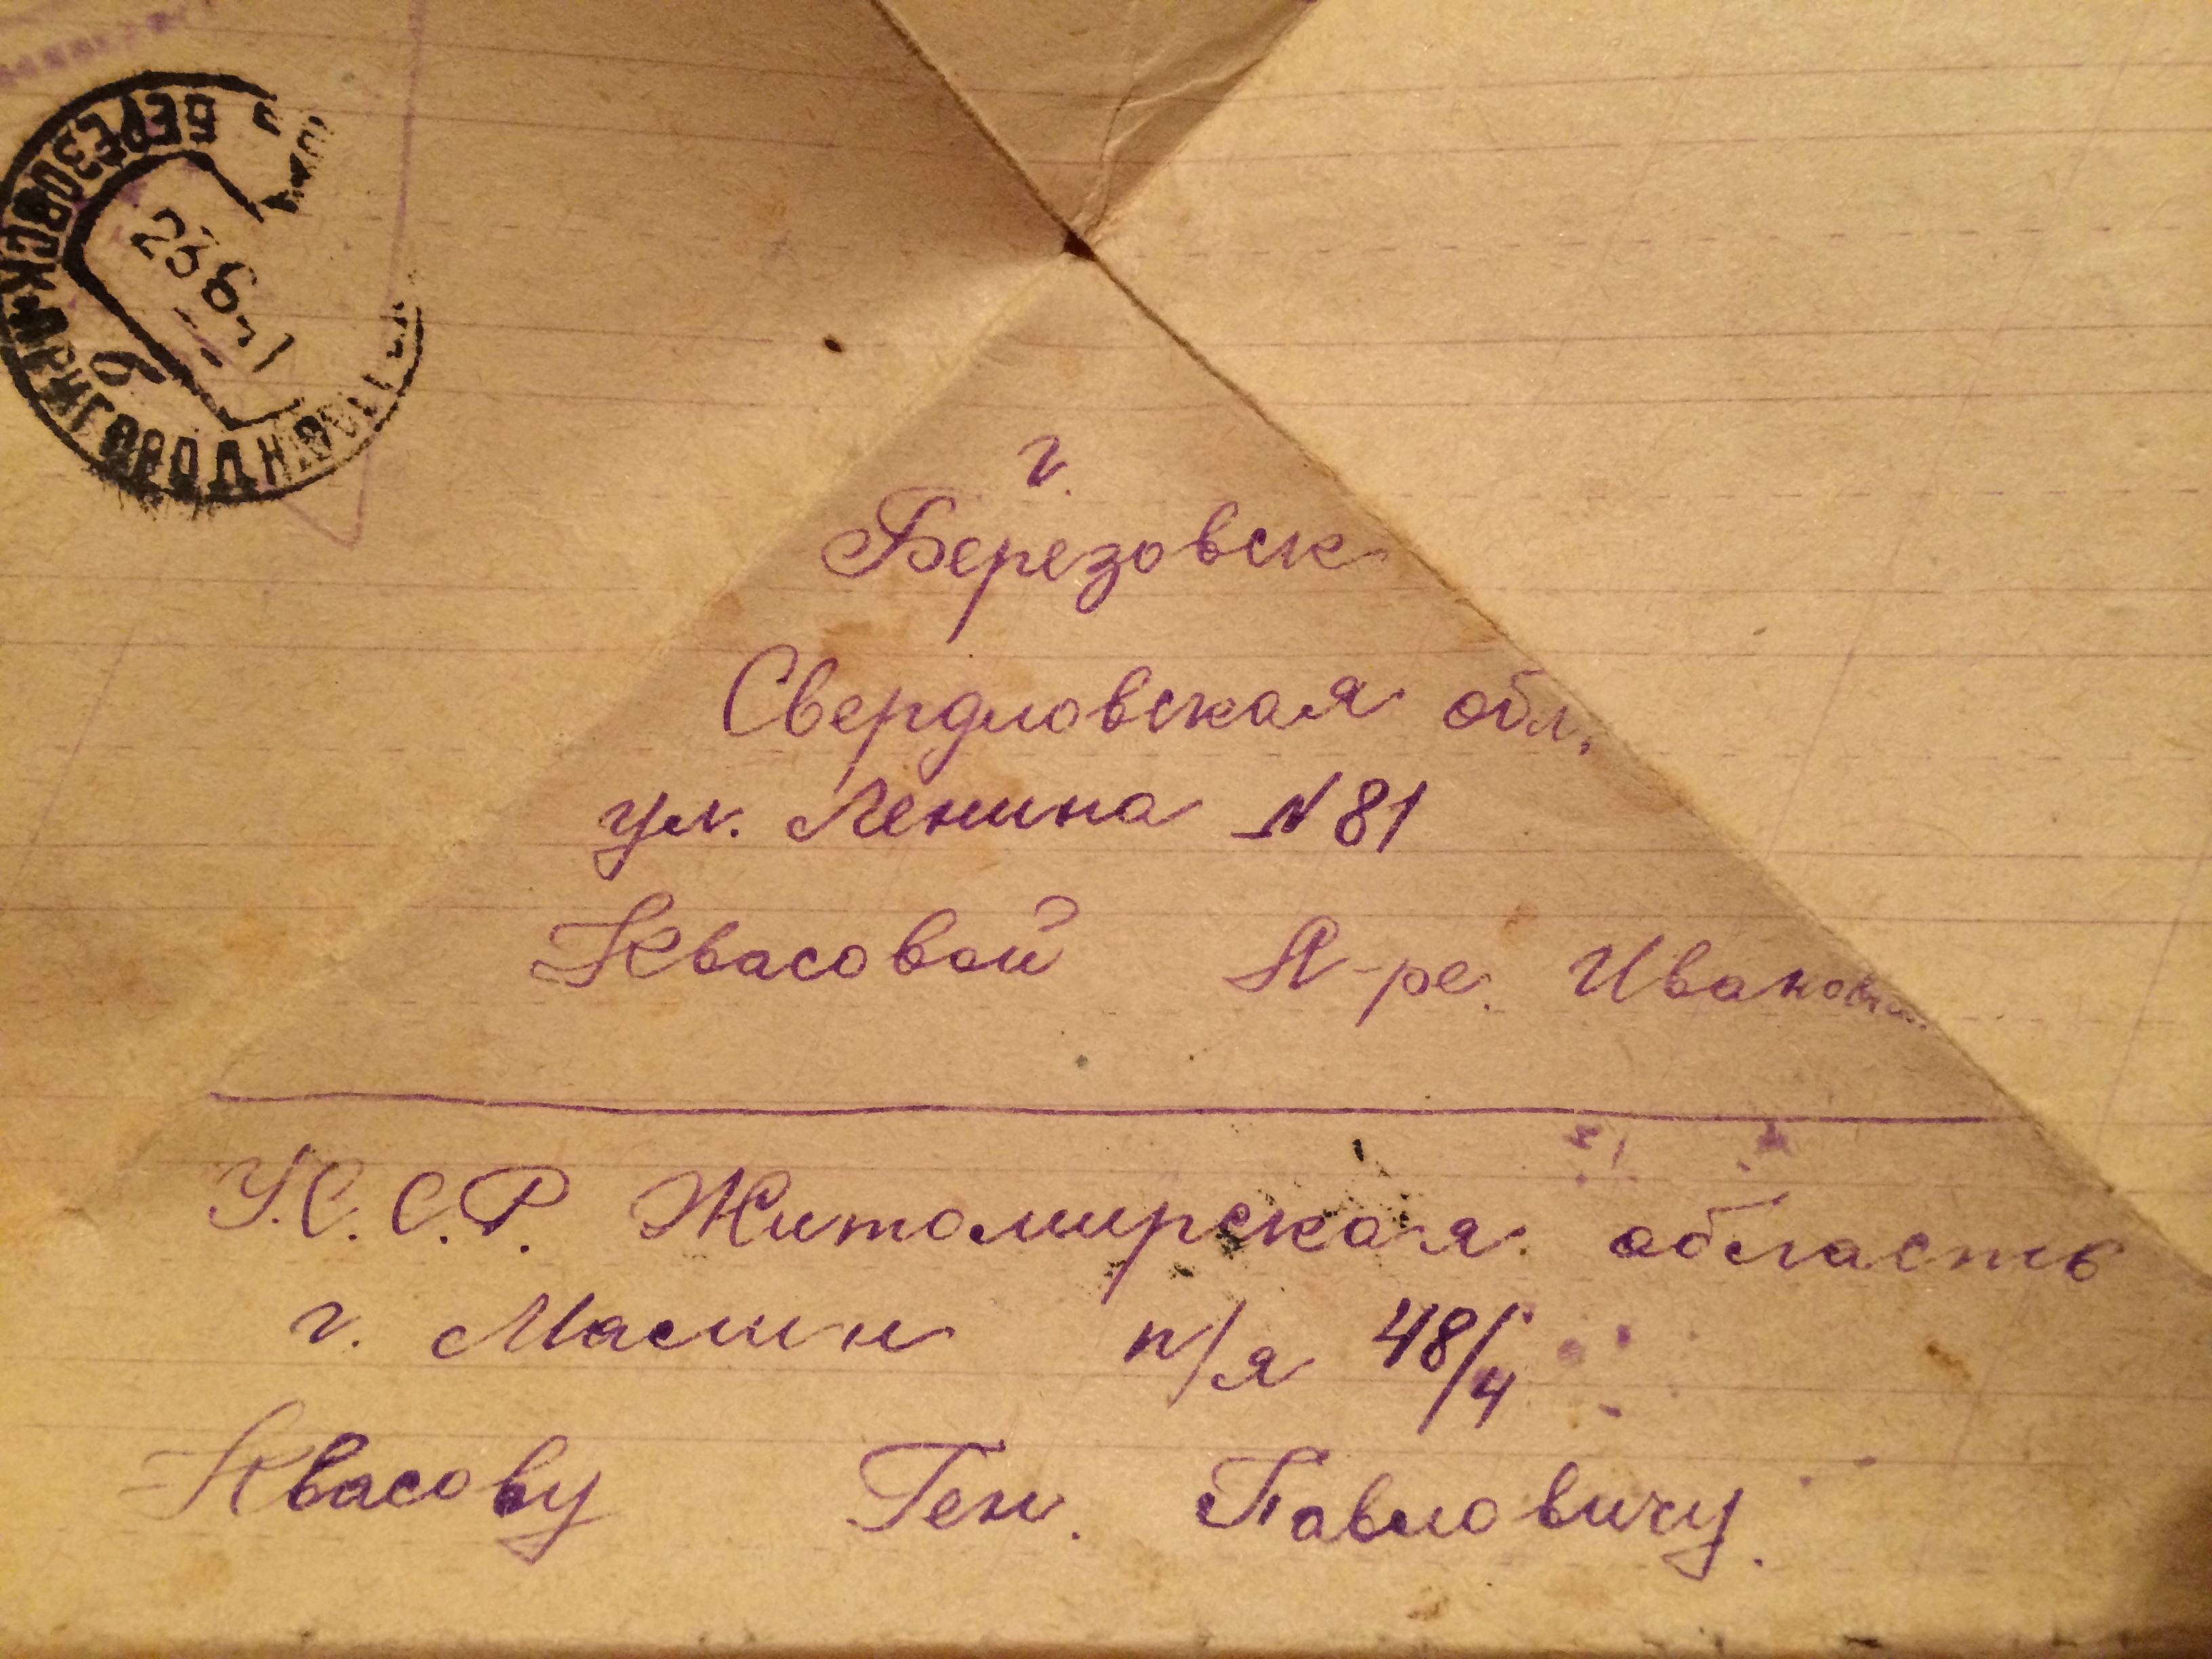 БЕРЕЗОВСК
23 6 41
г.
Березовск
Свердловская обл.
ул. Ленина N 81
Квасовой А-ре. Ивановн.
У.С.С.Р. Житомирская область
г. Маслин п/я 48/4
Квасову Ген. Павловичу.